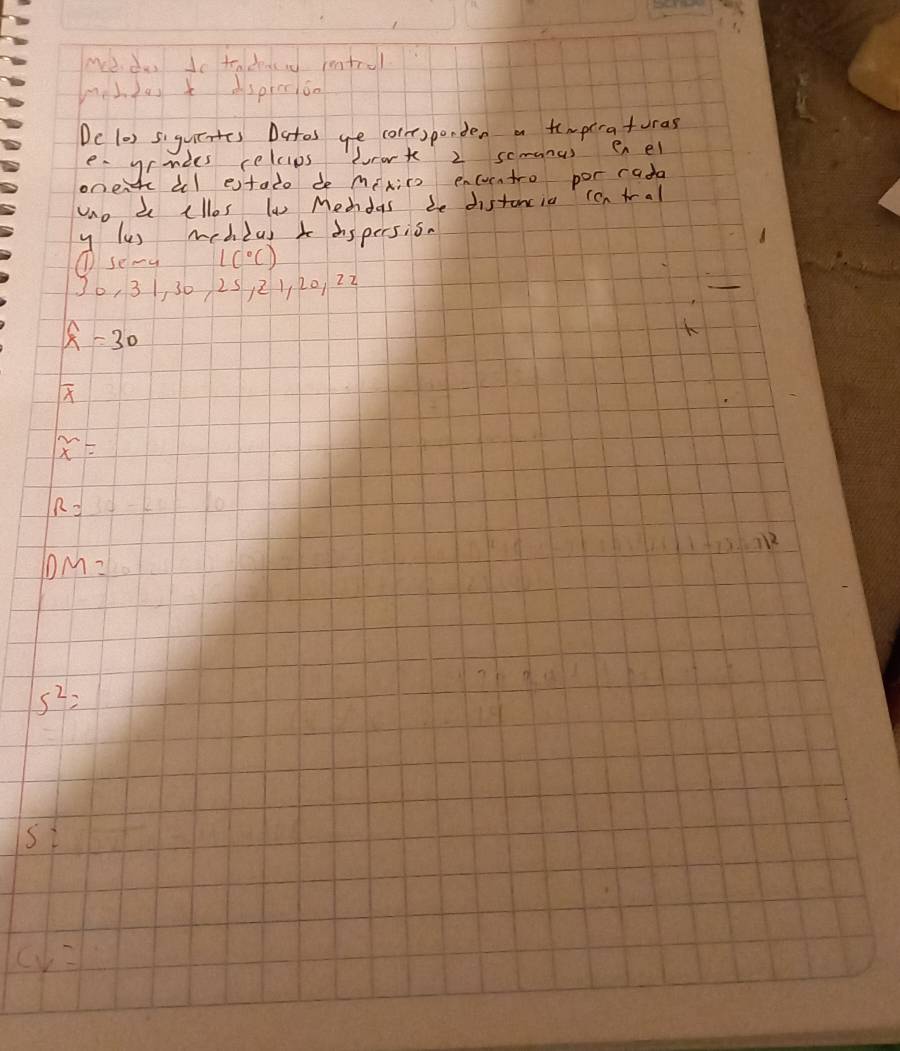 Medidas de tendencia central
medidas de dispersión
De los siguientes Datos que corresponden a temperaturas
en grados celcius durante 2 semanas en el
oriente del estado de México encuentro por cada
uno de ellos las Medidas de distancia central
y las medidas de dispersión
① sema 1(°C)
30, 31, 30, 25, 21, 20, 22
x̂ = 30
x̄
x̃ =
R =
DM =
S² =
S =
CV =